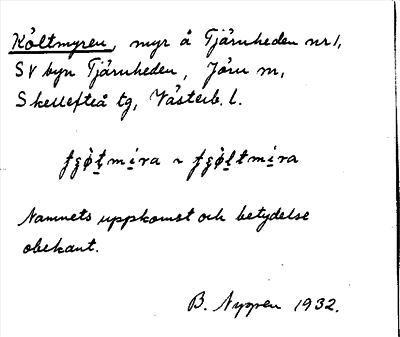 Költmyren, myr å Tjärnheden nr 1,
SV byn Tjärnheden, Jörn sn,
Skellefteå tg, Västerb. l.
Namnets uppkomst och betydelse
obekant.
B. Nyppen 1932.